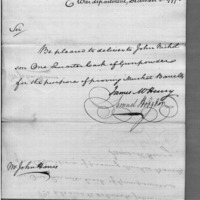 War department, December
Sir
Be pleased to deliver to John Nichol
son One Quarter cask of Gunpowder
for the purpose of proving Musket Barrells
James McHenry
Samuel Hodgdon
Mr John Harris